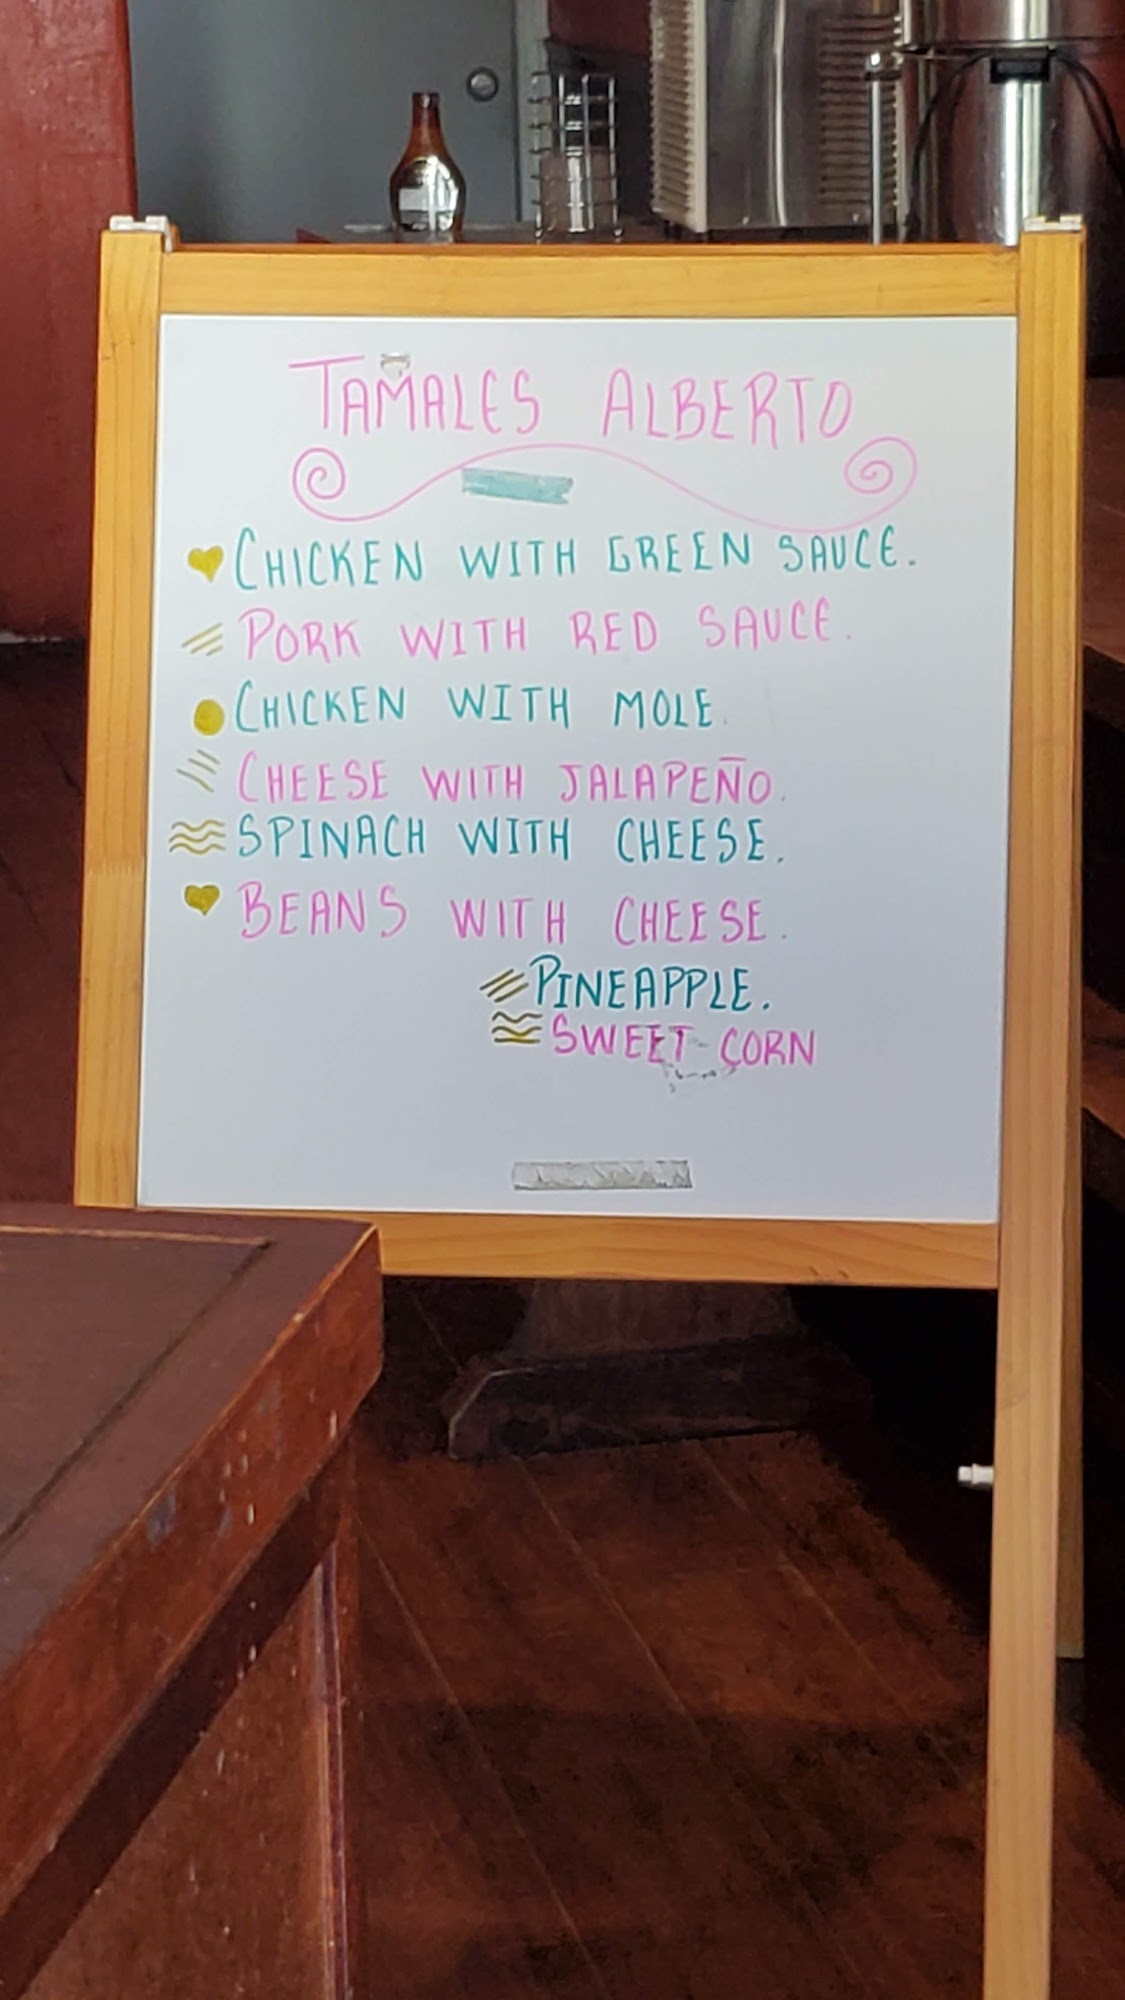 TAMALES ALBERTO
CHICKEN WITH GREEN SAUCE.
PORK WITH RED SAUCE.
CHICKEN WITH MOLE.
CHEESE WITH JALAPEÑO.
SPINACH WITH CHEESE.
BEANS WITH CHEESE.
PINEAPPLE.
SWEET CORN